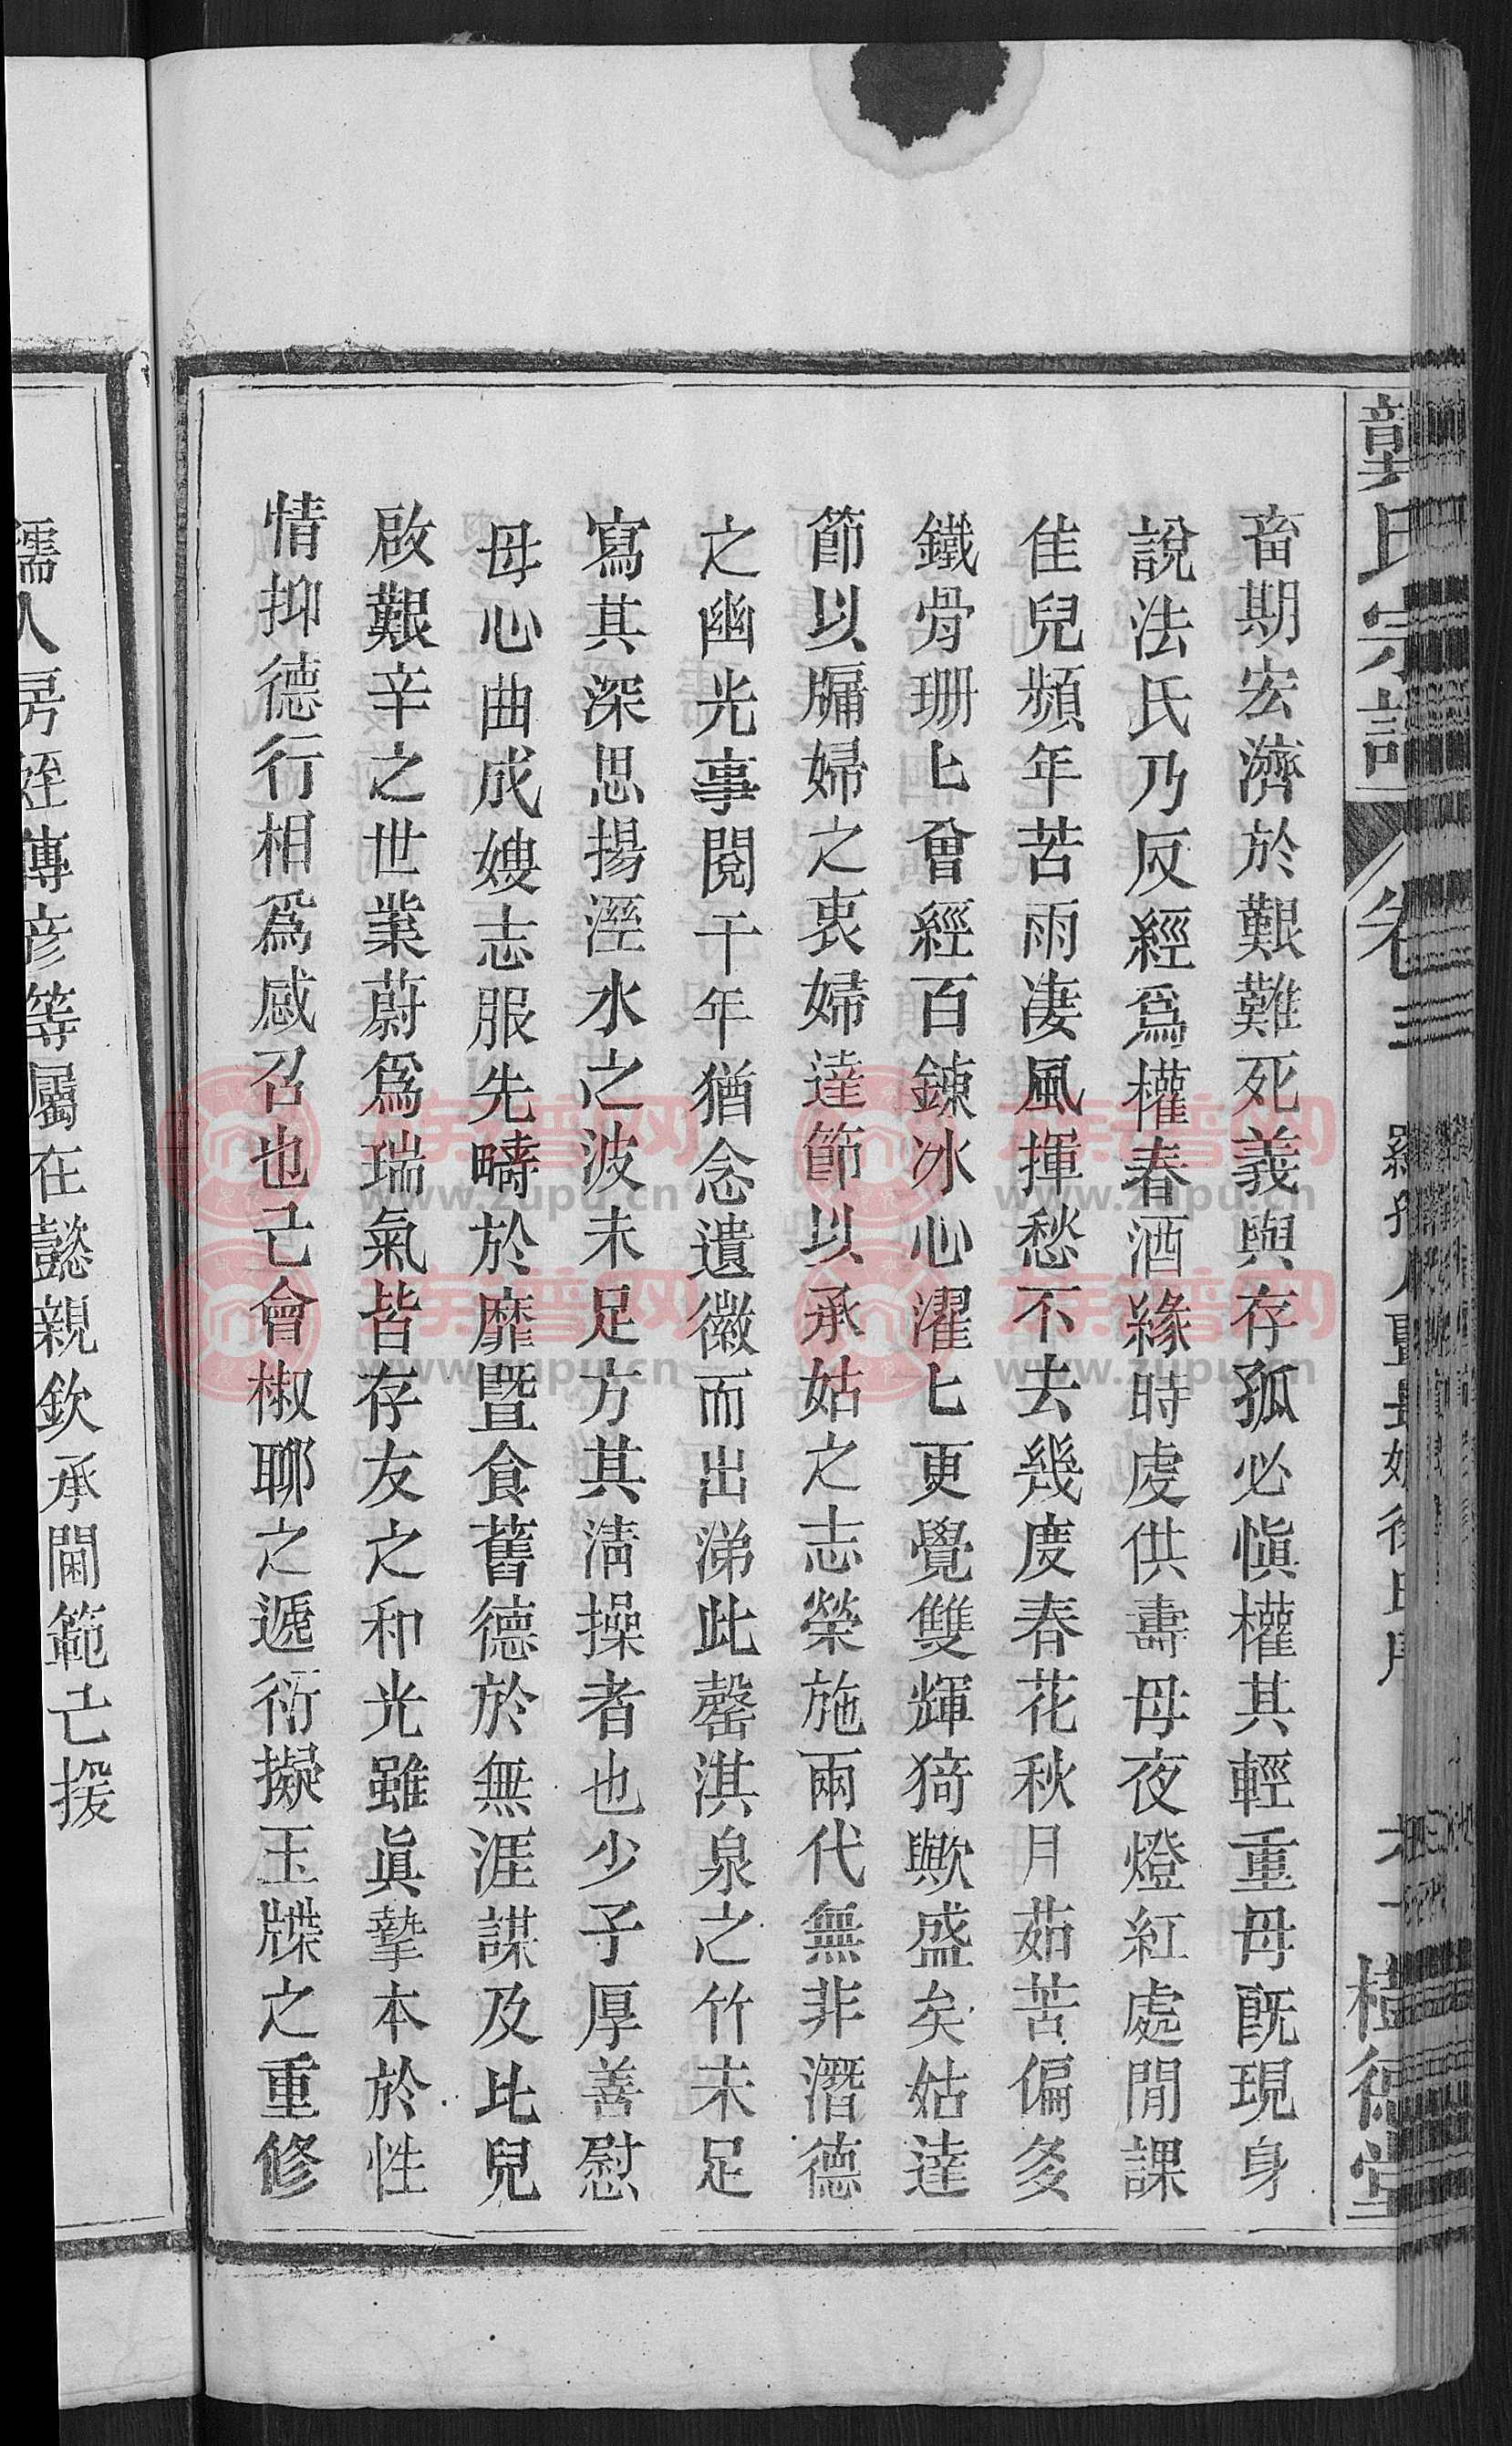 龔氏宗譜 卷三 羅孺人暨長媳徐氏序 樹德堂
畜期宏濟於艱難死義與存孤必愼權其輕重母旣現身
說法氏乃反經爲權春酒緣時虔供壽母夜燈紅處閒課
佳兒頻年苦雨凄風揮愁不去幾度春花秋月茹苦偏多
鐵骨珊匕曾經百鍊冰心濯匕更覺雙輝猗歟盛矣姑達
節以牖婦之衷婦達節以承姑之志榮施兩代無非潛德
之幽光事閱千年猶念遺徽而出涕此罄淇泉之竹未足
寫其深思揚溼水之波未足方其淸操者也少子厚善慰
母心曲成嫂志服先疇於靡曁食舊德於無涯謀及比兒
啟艱辛之世業蔚爲瑞氣皆存友之和光雖眞摯本於性
情抑德行相爲感召也亡會椒聊之遞衍擬玉牒之重修
孺人房姪傳彥等屬在懿親欽承閫範亡援
www.zupu.cn
族普网
www.zupu.cn
族普网
www.zupu.cn
族普网
www.zupu.cn
族普网